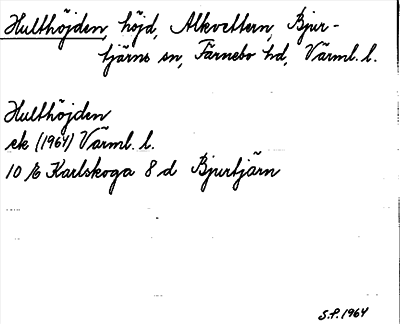 Hulthöjden, höjd, Alkvettern, Bjur-
tjärns sn, Färnebo hd, Värml. l.
Hulthöjden
ek (1964) Värml. l.
10 E Karlskoga 8 d Bjurtjärn
S.P. 1964